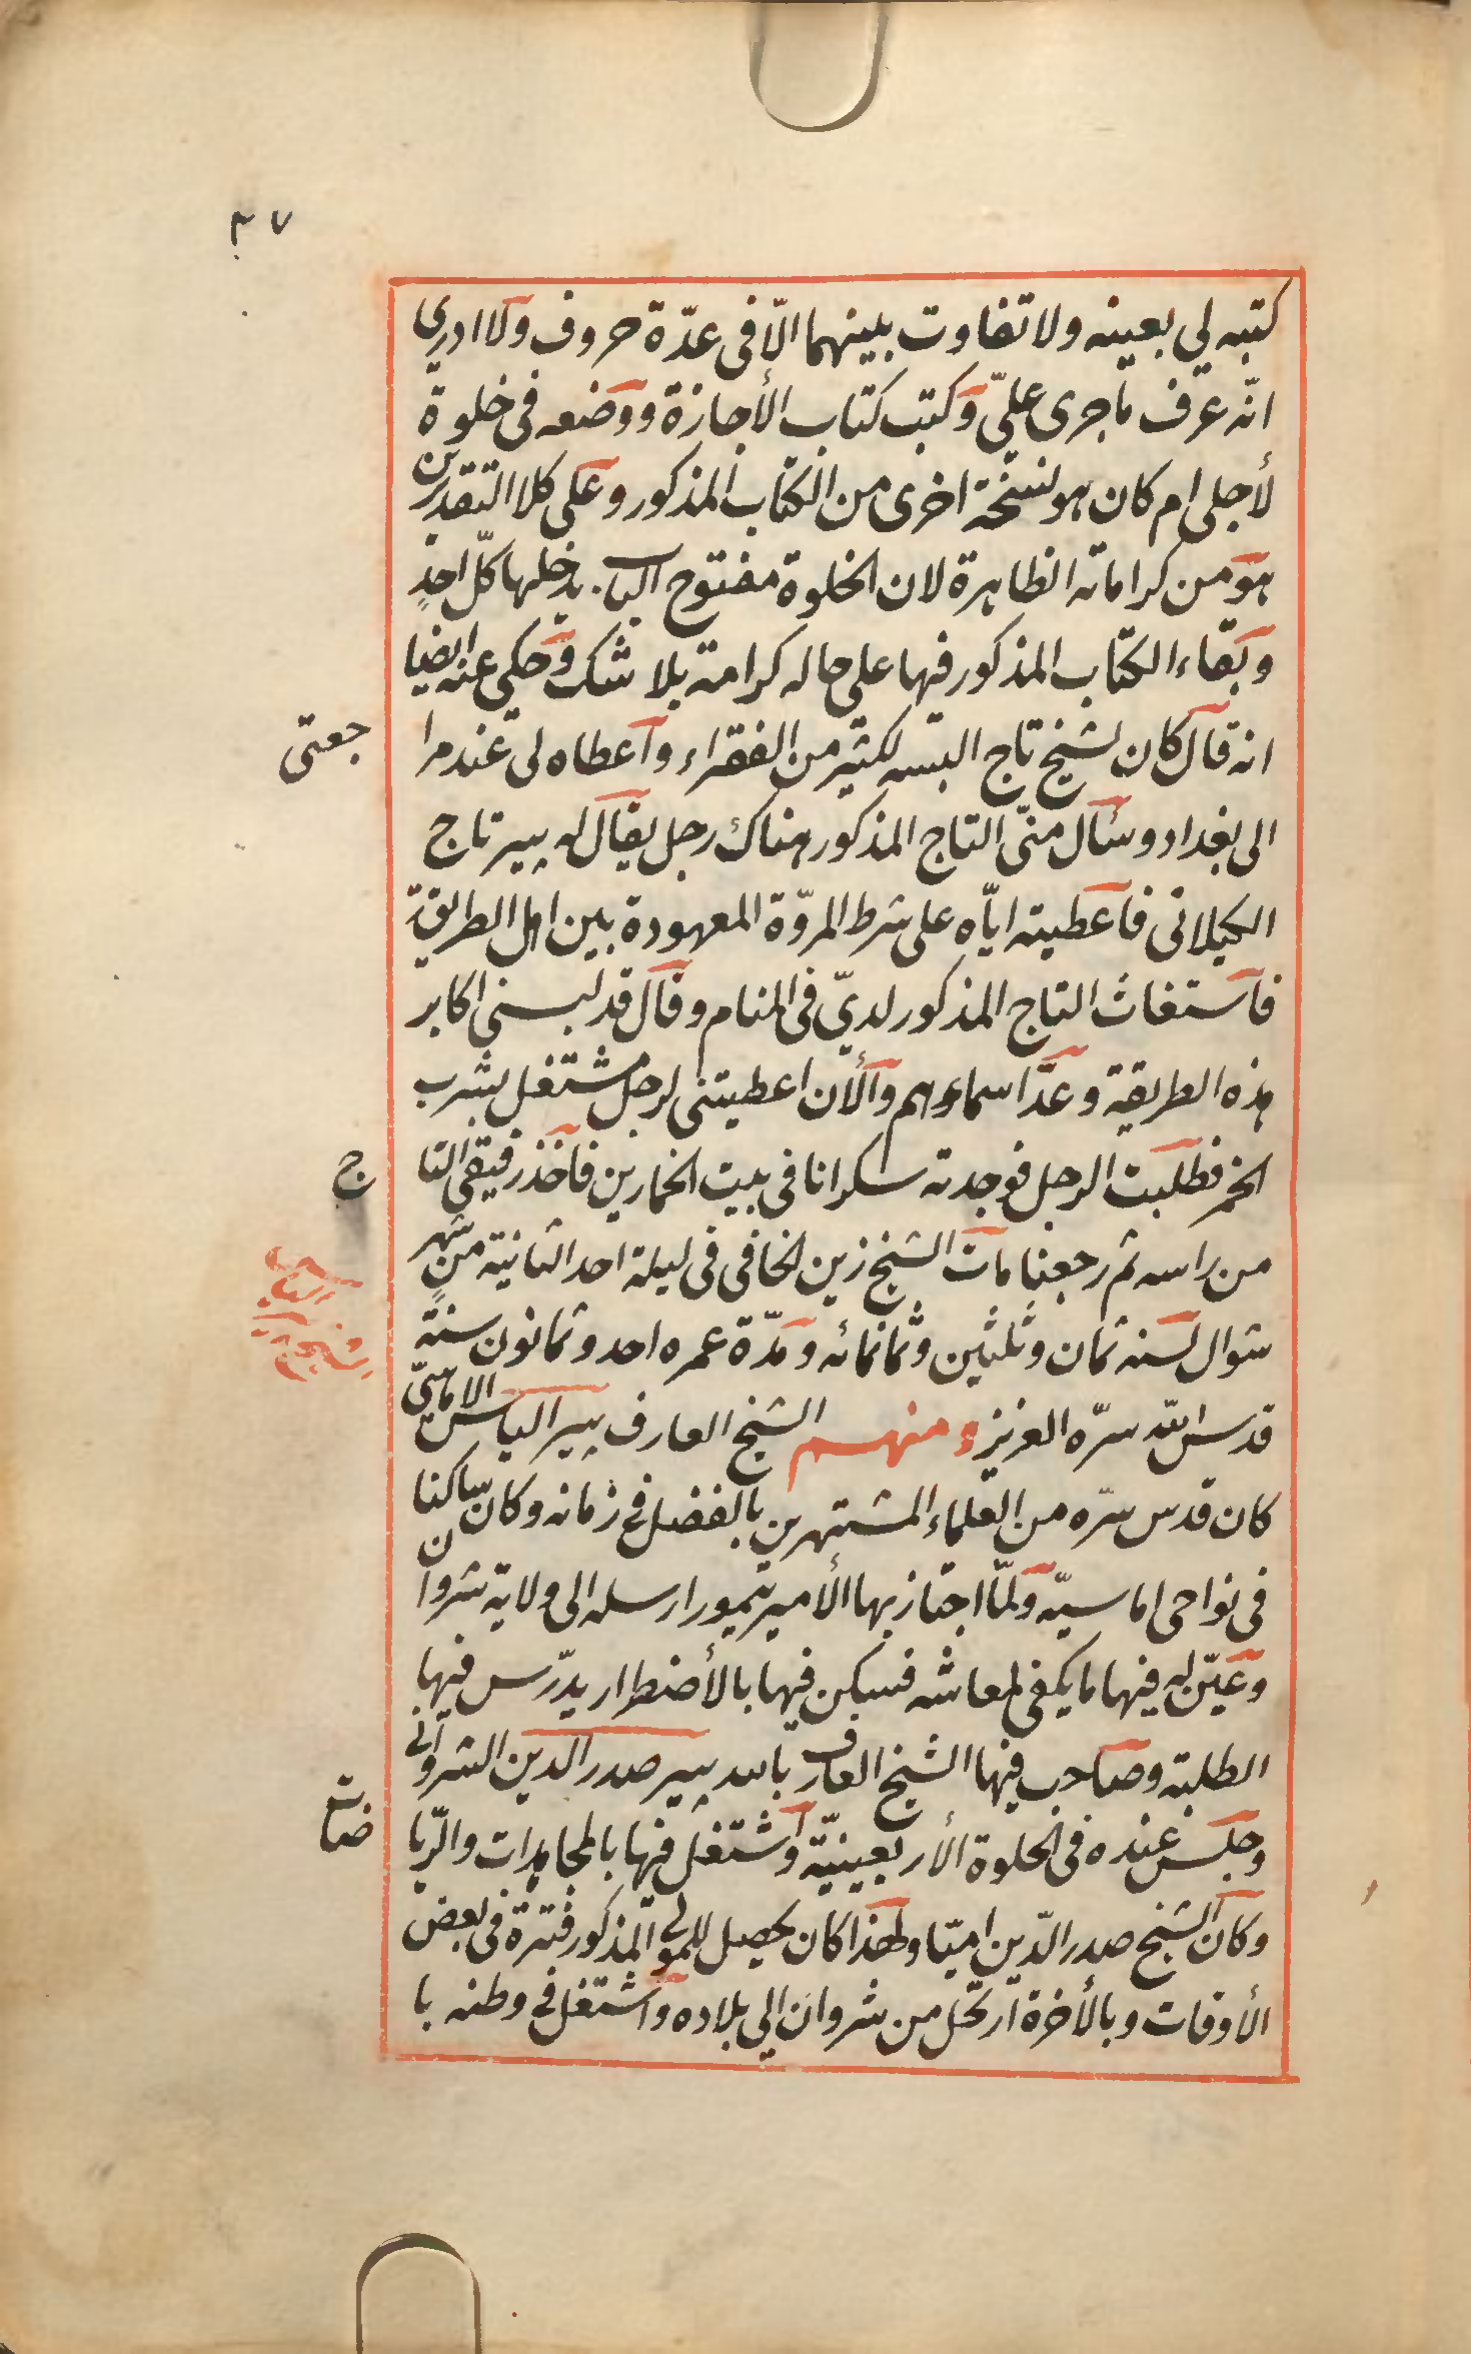 ٣٧
كتبه لي بعينه ولا تفاوت بينهما الّا فى عدّة حروف ولا ادري
انّه عرف ما جرى عليّ وكتب كتاب الأجازة ووضعه فى خلوة
لأجلى ام كان هو نسخة اخرى من الكتاب المذكور وعلى كلا التقديرين
هو من كراماته الظاهرة لان الخلوة مفتوح الباب يدخلها كلّ احدٍ
وبقاء الكتاب المذكور فيها على حاله كرامة بلا شك وحكى عنه ايضا
انه قال كان لشيخ تاج البسه لكثير من الفقراء واعطاه لى عند مرا
جعتى
الى بغداد وسأل منّى التاج المذكور هناك رجل يقال له پير تاج
الكيلانى فاعطيته ايّاه على شرط المروّة المعهودة بين اهل الطريقة
فاستغاث التاج المذكور لديّ فى المنام وقال قد لبسنى اكابر
هذه الطريقة وعدّ اسماءهم والأن اعطيتنى لرجل مشتغل بشرب
الخمر فطلبت الرجل فوجدته سكرانا فى بيت الخمارين فاخذ رفيقى التا
ج
من راسه ثم رجعنا مات الشيخ زين الخافى فى ليلة احد الثانية من شهر
شوال لسنه ثمان وثلثين وثمانمائه ومدّة عمره احد وثمانون سنة
قدس الله سرّه العزيز ومنهم الشيخ العارف پير الياس الاماسىّ
كان قدس سرّه من العلماء المشتهرين بالفضل فى زمانه وكان ساكنا
فى نواحى اماسيّه ولمّا اجتاز بها الأمير تيمور ارسله الى ولاية شروان
وعيّن له فيها ما يكفى لمعاشه فسكن فيها بالأضطرار يدّرس فيها
الطلبة وصاحب فيها الشيخ العارف بالله پير صدر الدين الشروانى
وجلس عنده فى الخلوة الأربعينيّة واشتغل فيها بالمجاهدات والرّيا
ضات
وكان الشيخ صدر الدّين اميّا ولهذا كان يحصل للمولى المذكور فترة فى بعض
الأوقات وبالأخرة ارتحل من شروان الى بلاده واشتغل فى وطنه با